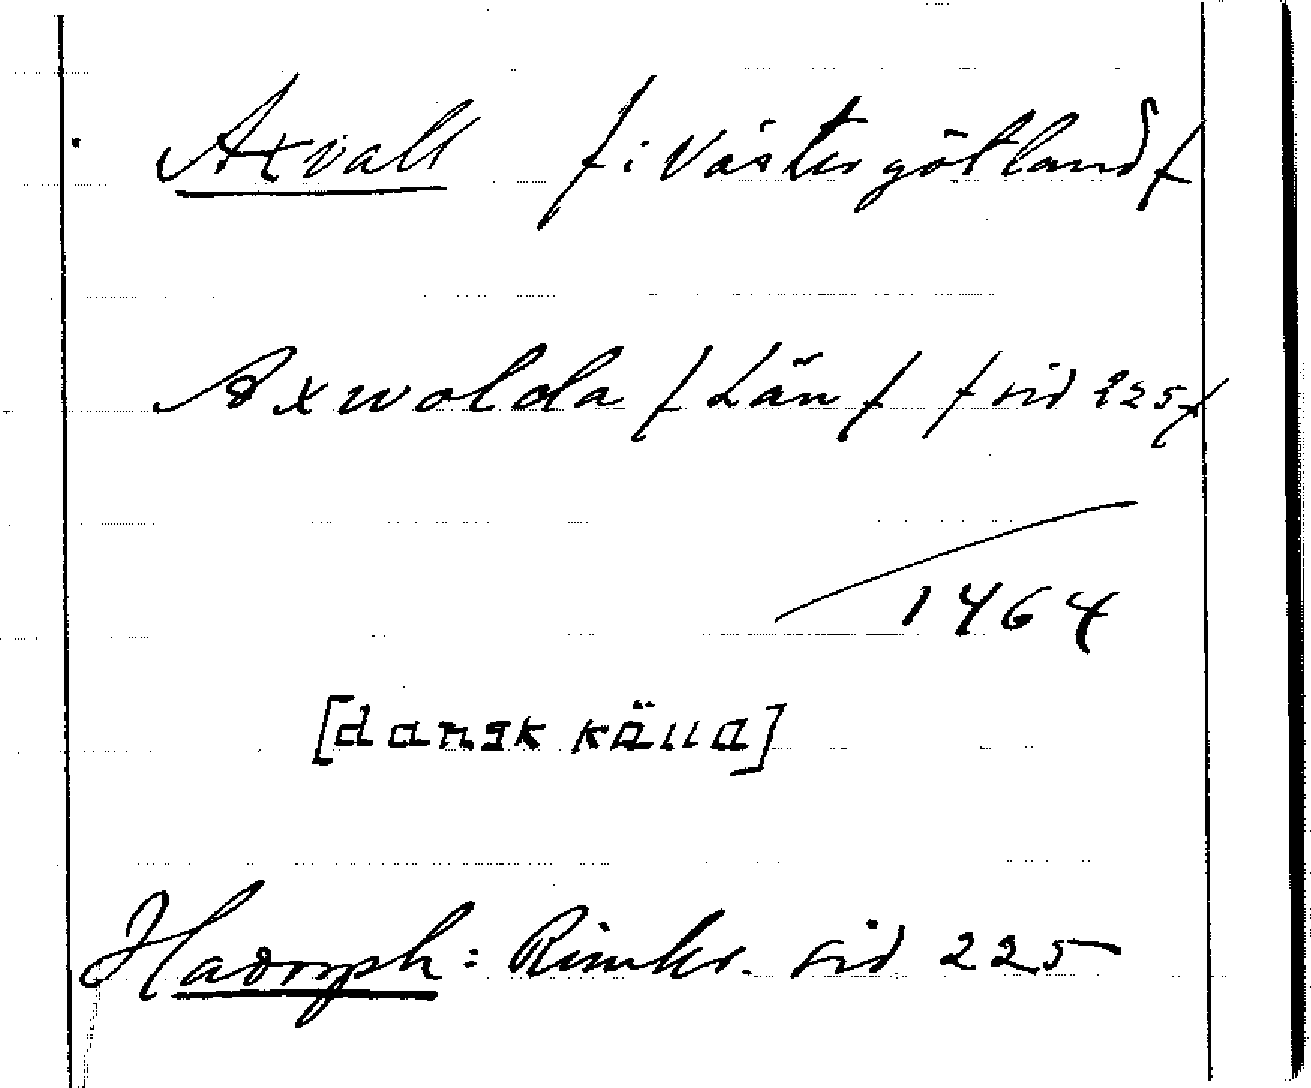 Axvall /i Västergötland/
Axwolda /Län/ /sid 225/
1464
[dansk källa]
Hadorph: Rimkr. sid 225